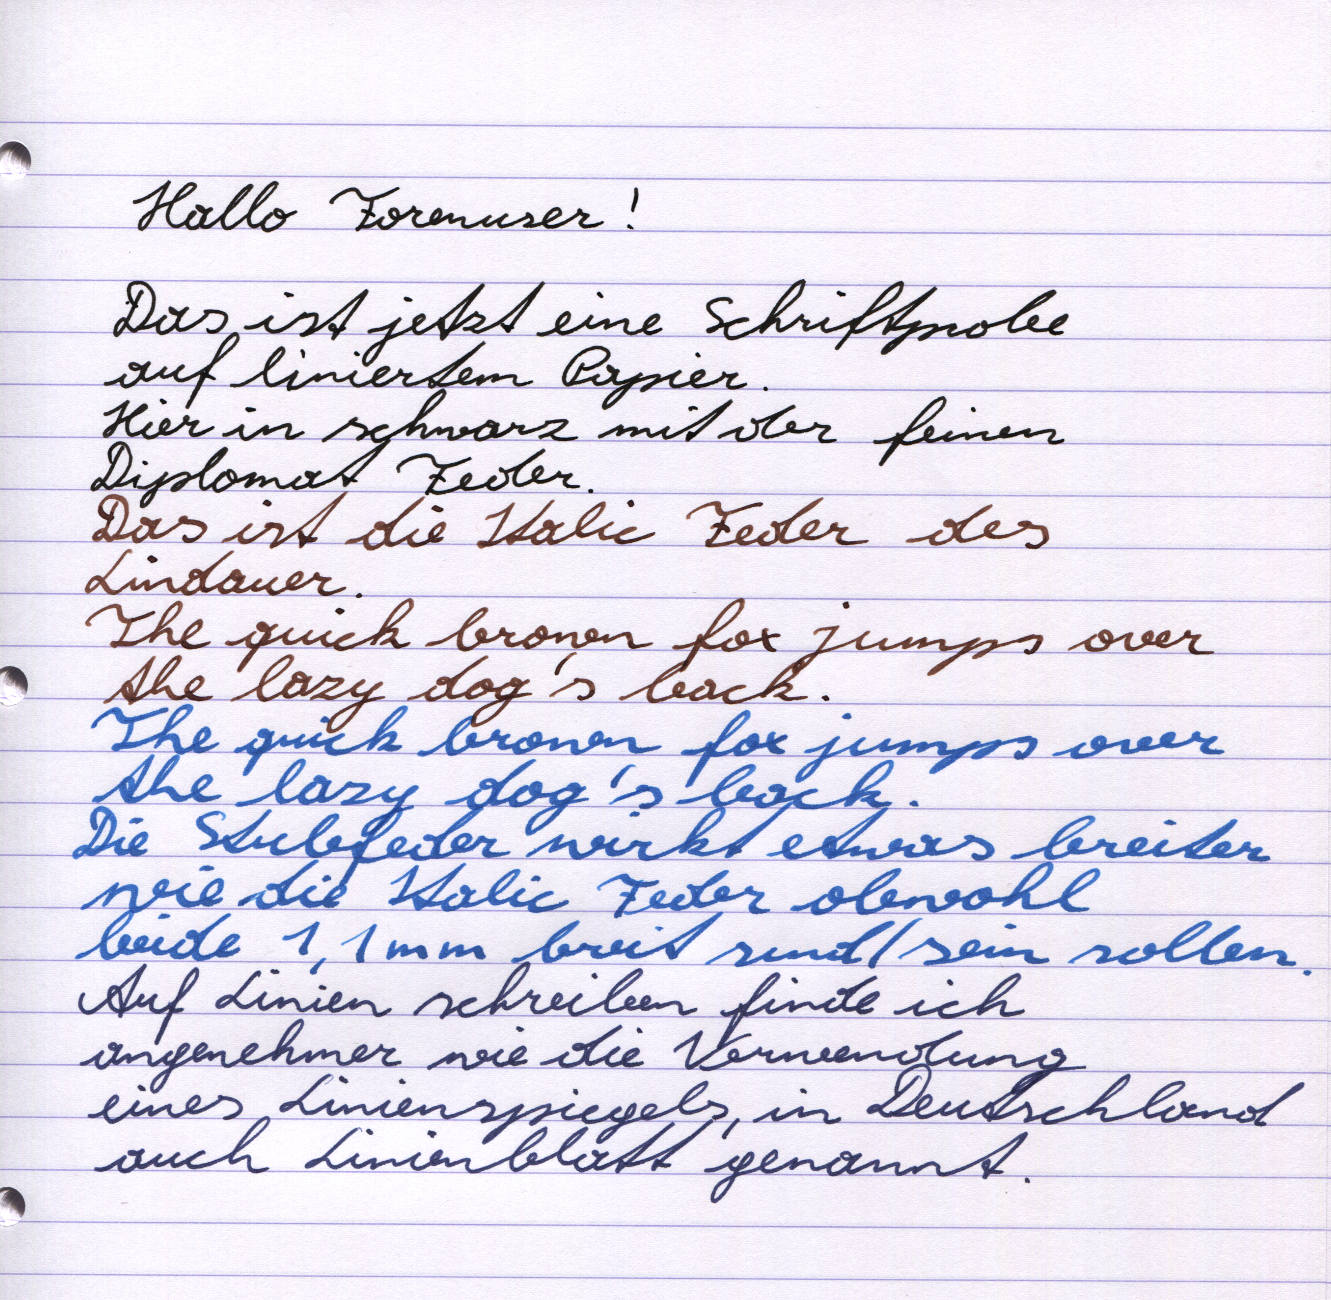 Hallo Forenuser!
Das ist jetzt eine Schriftprobe
auf liniertem Papier.
Hier in schwarz mit der feinen
Diplomat Feder.
Das ist die Italic Feder des
Lindauer.
The quick brown fox jumps over
the lazy dog's back.
The quick brown fox jumps over
the lazy dog's back.
Die Stubfeder wirkt etwas breiter
wie die Italic Feder obwohl
beide 1,1mm breit sind/sein sollen.
Auf Linien schreiben finde ich
angenehmer wie die Verwendung
eines Linienspiegels, in Deutschland
auch Linienblatt genannt.